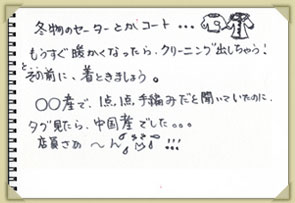 冬物のセーターとかコート...
もうすぐ暖かくなったら、クリーニング出しちゃう!
とその前に、着ときましょう。
〇〇産で、1点、1点、手編みだと聞いていたのに、
タグ見たら、中国産でした。。。
店員さぁ〜ん!!!